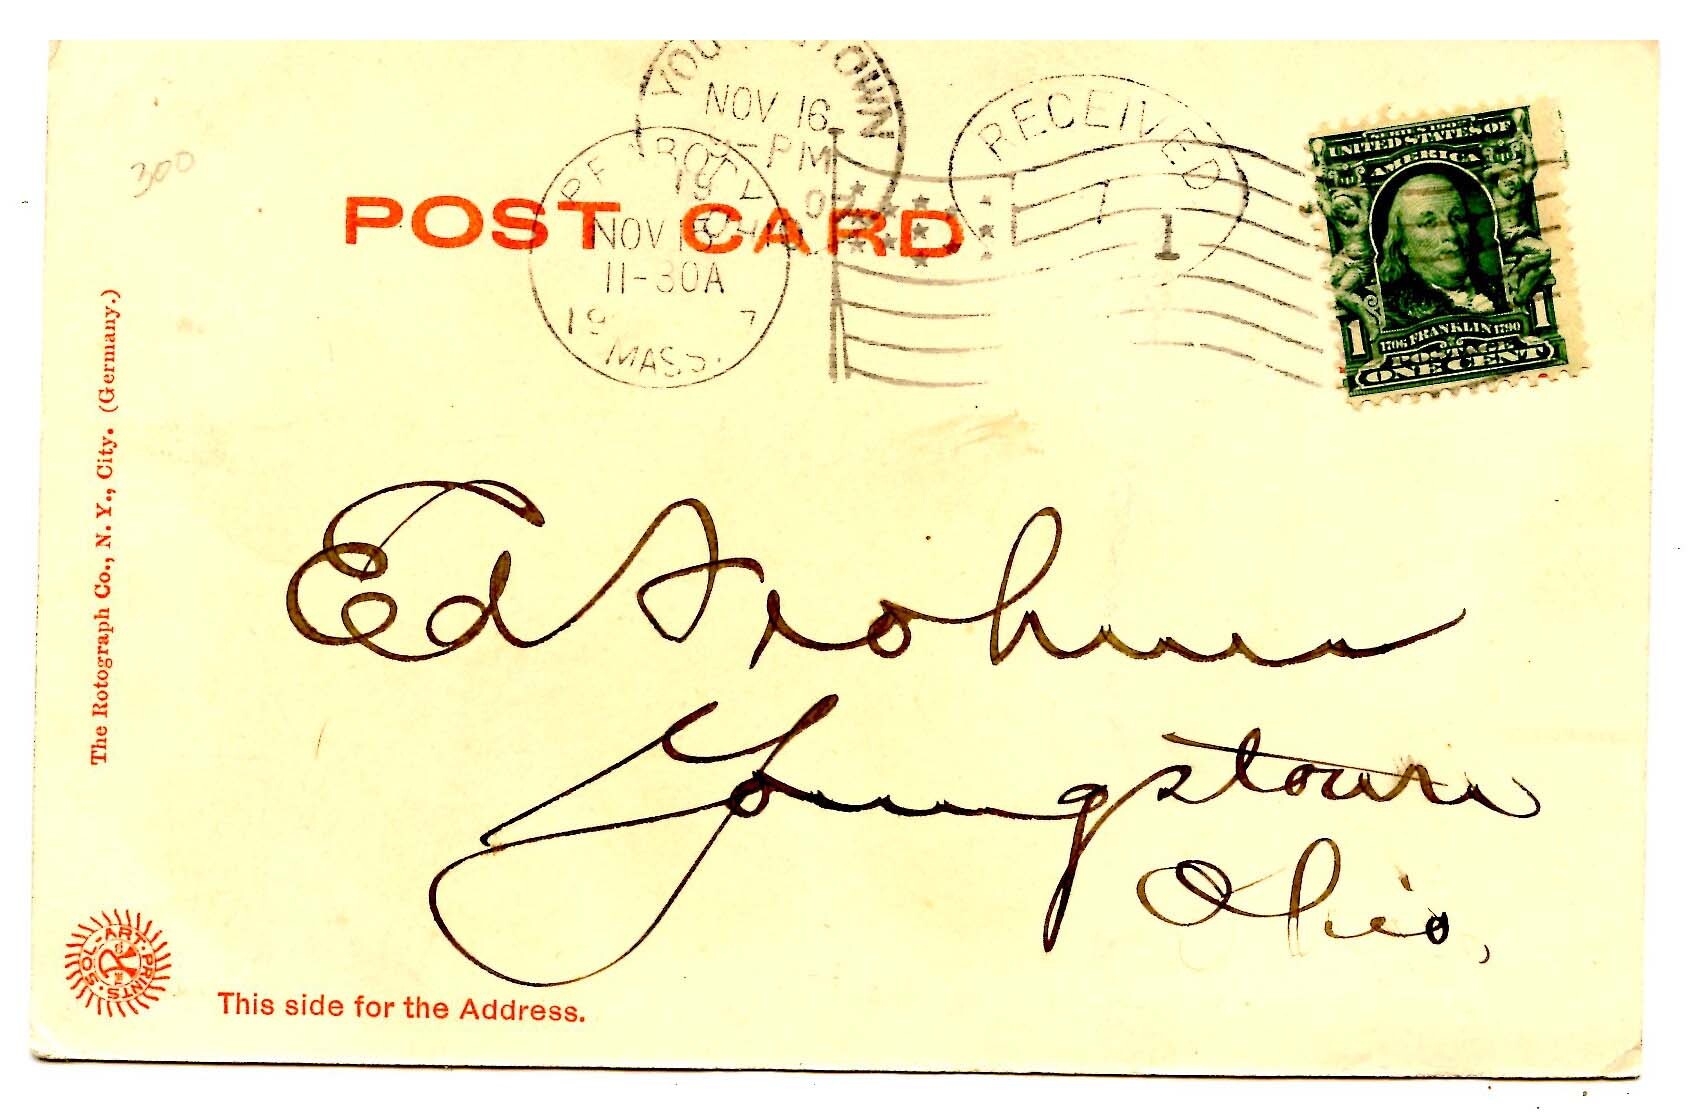 NOV 16
-PM
RECEIVED
1
300
POST CARD
NOV 15
11-30A
19 7
MASS.
SERIES 1902
UNITED STATES OF
AMERICA
1706 FRANKLIN 1790
POSTAGE
1 ONE CENT 1
The Rotograph Co., N. Y., City. (Germany.)
Ed Frohman
Youngstown
Ohio,
SOL-ART-PRINTS
This side for the Address.